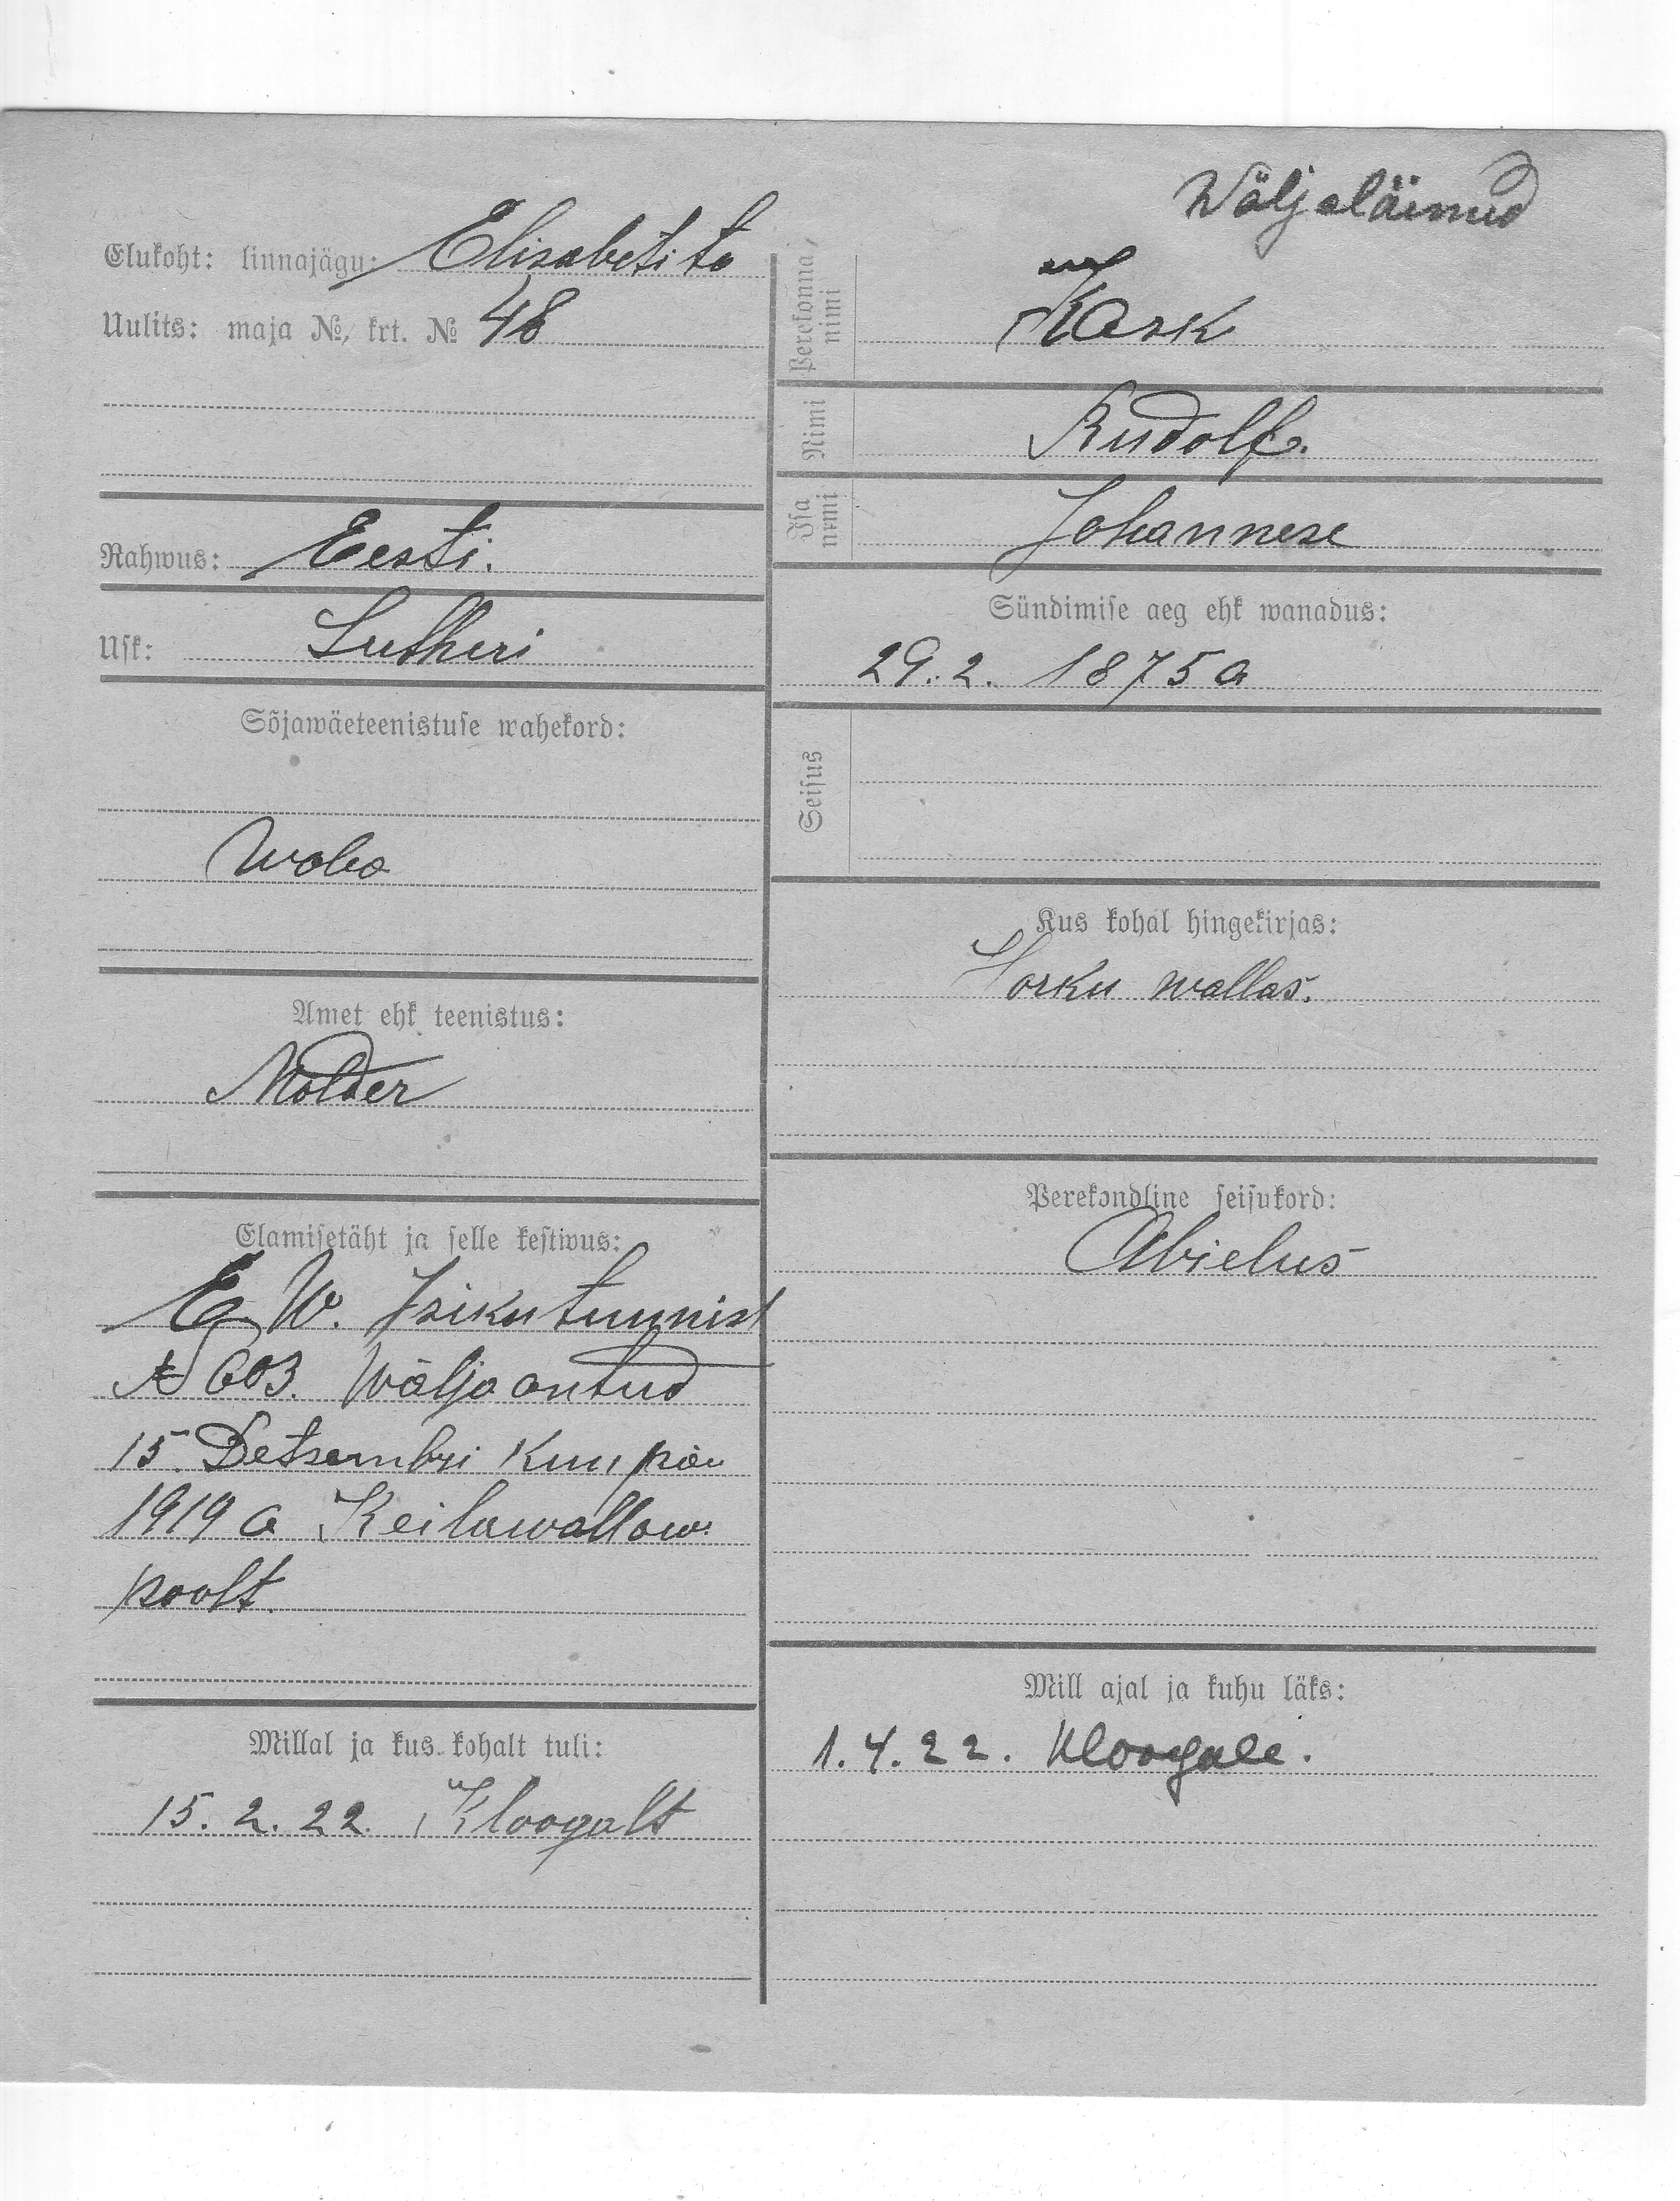 Wäljaläinud
Elukoht: linnajägu: Elisabeti tä
Uulits: maja №, krt. № 48
Rahwus: Eesti.
Usk: Lutheri
Sõjawäeteenistuse wahekord:
Waba
Amet ehk teenistus:
Mölder
Elamisetäht ja selle kestwus:
E. W. Isikutunnist
№ 603. Wälja antud
15. Detsembri kuu päew
1919 a Keila wallaw.
poolt.
Millal ja kus kohalt tuli:
15. 2. 22. Kloogalt
Perekonna nimi
Kask
Nimi
Rudolf.
Isa nimi
Johannese
Sündimise aeg ehk wanadus:
29. 2. 1875 a
Seisus
Kus kohal hingekirjas:
Harku wallas.
Perekondline seisukord:
Abielus
Mill ajal ja kuhu läks:
1. 4. 22. Kloogale.